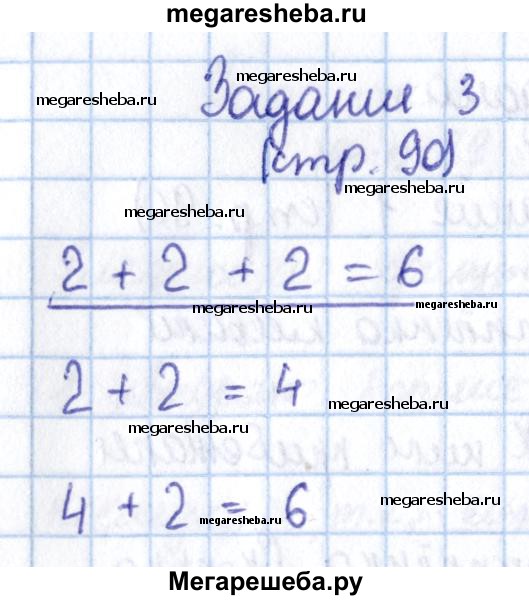 megaresheba.ru
megaresheba.ru
Задание 3
megaresheba.ru
(стр. 90)
megaresheba.ru
megaresheba.ru
2 + 2 + 2 = 6
megaresheba.ru
megaresheba.ru
2 + 2 = 4
megaresheba.ru
megaresheba.ru
4 + 2 = 6
megaresheba.ru
megaresheba.ru
Мегарешеба.ру